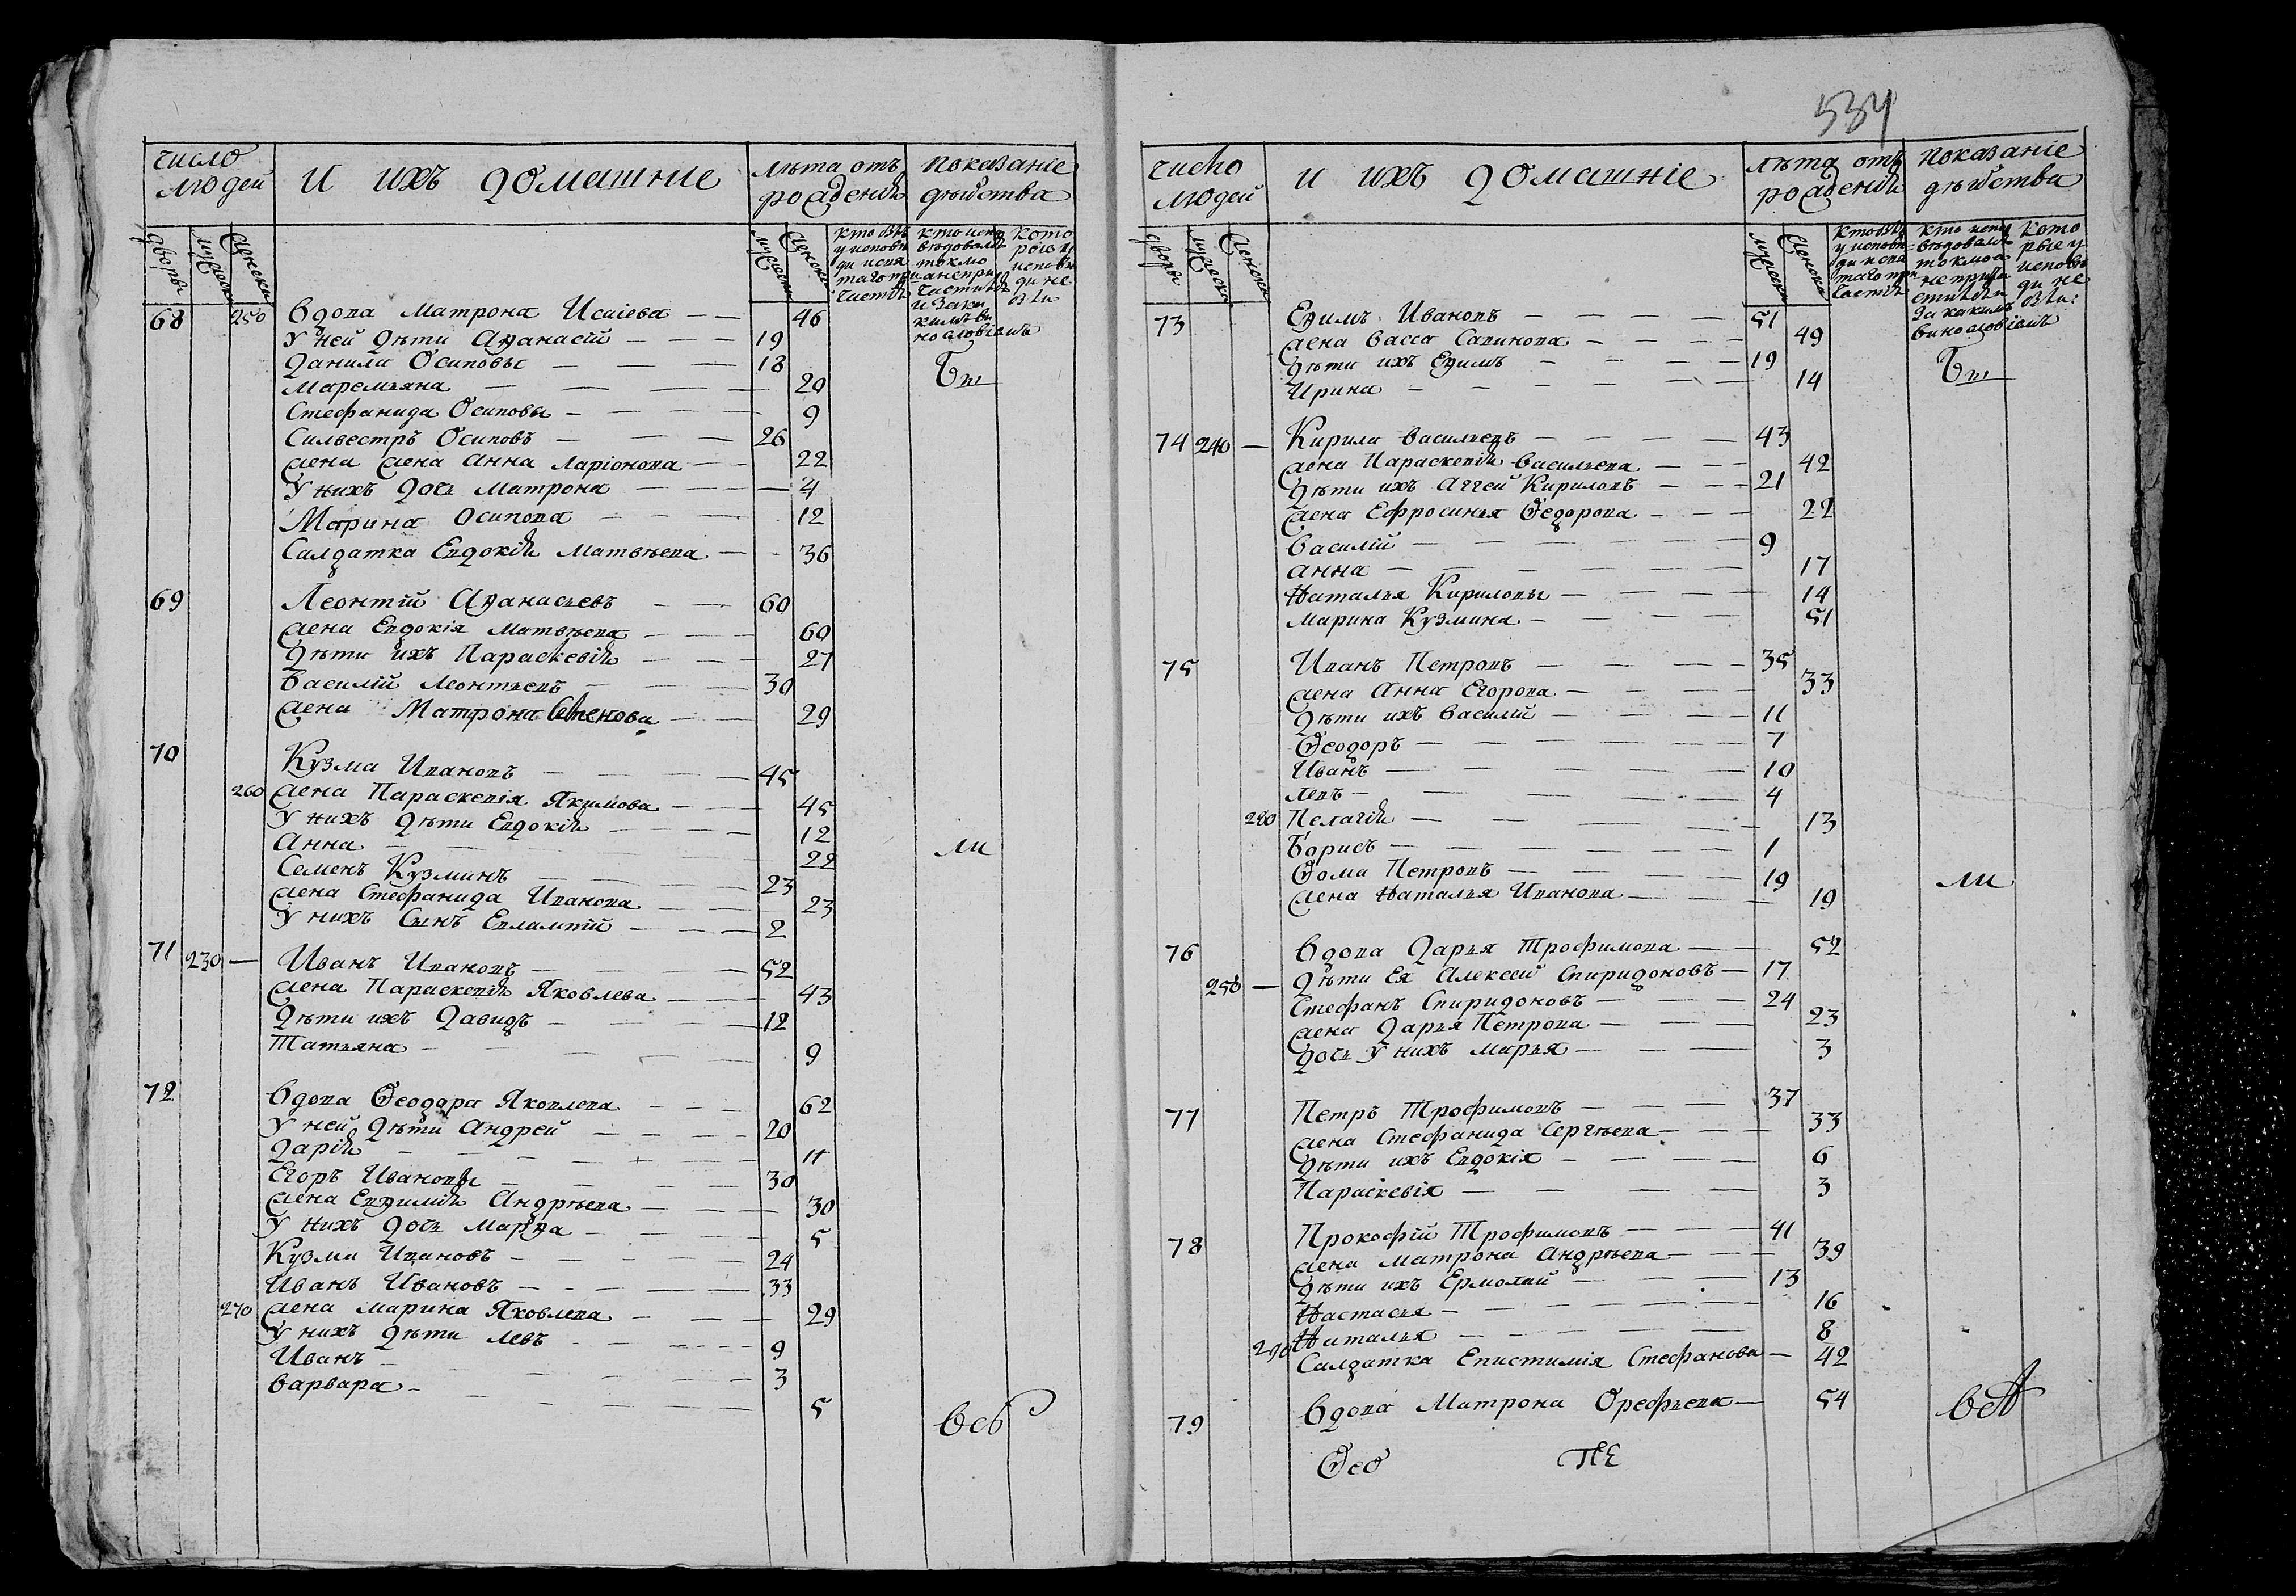 число людей
и ихъ домашніе
лѣта отъ рожденій
показаніе дѣйства
дворы
мужеска
женска
мужеска
женска
68 250 Вдова Матрона Исаіева — 46
У ней Дѣти Аѳанасій — 19
Данила Осиповы — 18
Маремьяна — 20
Стефанида Осиповы — 9
Силвестръ Осиповъ — 26
жена жена Анна Ларіонова — 22
У нихъ дочь Матрона — 4
Марина Осипова — 12
Салдатка Евдокій Матвѣева — 36
69 Леонтій Аѳанасьевъ — 60
жена Евдокія Матвѣева — 60
Дѣти ихъ Параскевій — 27
Василій Леонтьевъ — 30
жена Матрона Семенова — 29
70 Кузма Ивановъ — 45
260 жена Параскевія Якимова — 45
У нихъ Дѣти Евдокій — 12
Анна — 22
Семенъ Кузминъ — 23
жена Стефанида Иванова — 23
У нихъ Сынъ Евлампій — 2
ли
71 230 — Иванъ Ивановъ — 52
жена Параскевій Яковлева — 43
Дѣти ихъ Давидъ — 12
Татьяна — 9
72 Вдова Ѳеодора Яковлева — 62
У ней Дѣти Андрей — 20
Дарій — 11
Егоръ Ивановы — 30
жена Евѳимій Андрѣева — 30
У нихъ дочь Марѳа — 5
Кузма Ивановъ — 24
Иванъ Ивановъ — 33
270 жена Марина Яковлева — 29
У нихъ Дѣти Левъ — 9
Иванъ — 3
Варвара — 5
534
число людей
и ихъ домашніе
лѣта отъ рожденій
показаніе дѣйства
дворы
мужеска
женска
мужеска
женска
73 Еѳимъ Ивановъ — 51
жена Васса Савинова — 49
Дѣти ихъ Еѳимъ — 19
Ирина — 14
74 240 — Кирила Васильевъ — 43
жена Параскевій Васильева — 42
Дѣти ихъ Аггей Кириловъ — 21
жена Ефросинья Ѳедорова — 22
Василій — 9
Анна — 17
Наталья Кириловы — 14
Марина Кузмина — 51
75 Иванъ Петровъ — 35
жена Анна Егорова — 33
Дѣти ихъ Василій — 11
Ѳеодоръ — 7
Иванъ — 10
Левъ — 4
280 Пелагій — 13
Борисъ — 1
Ѳома Петровъ — 19
жена Наталья Иванова — 19
ли
76 Вдова Дарья Трофимова — 52
250 — Дѣти Ея Алексей Спиридоновъ — 17
Стефанъ Спиридоновъ — 24
жена Дарья Петрова — 23
дочь У нихъ Марья — 3
77 Петръ Трофимовъ — 37
жена Стефанида Сергѣева — 33
Дѣти ихъ Евдокія — 6
Параскевія — 3
78 Прокофій Трофимовъ — 41
жена Матрона Андрѣева — 39
Дѣти ихъ Ермолай — 13
Настасья — 16
Наталья — 8
290 Салдатка Епистимія Стефанова — 42
79 Вдова Матрона Орефьева — 54
Ѳео ПЕ